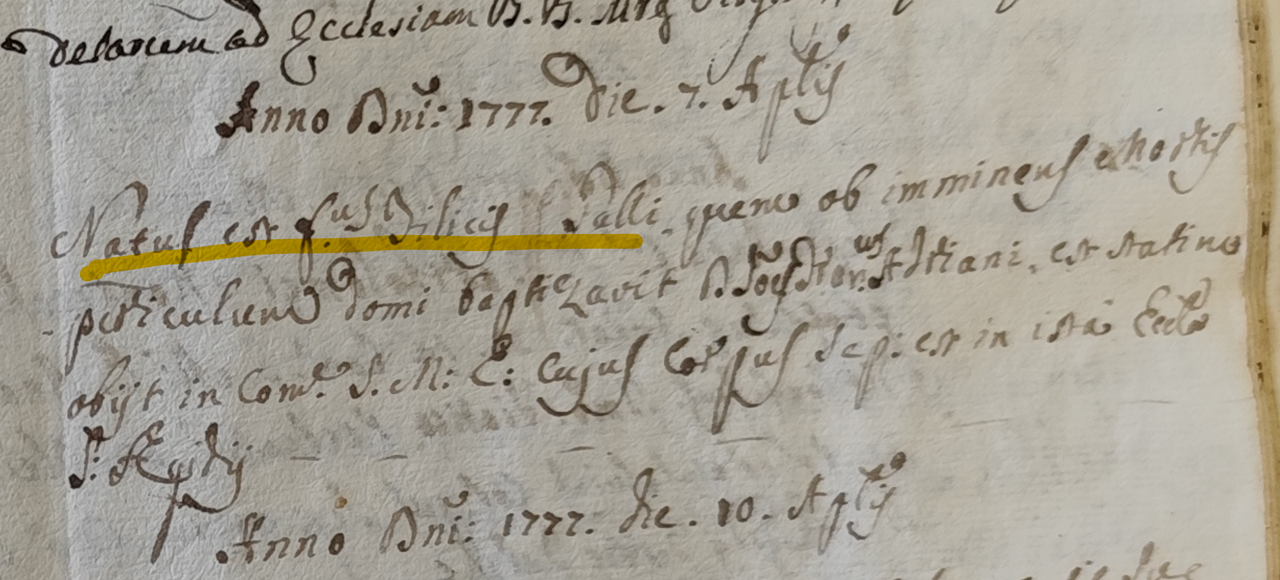 delarum ad Ecclesiam B. B. Mrę
Anno Dni: 1777. Die. 7. Aplis
Natus est f.us Filicis Palli. quem ob imminens Mortis
periculum Domi baptizavit D. Adriani, et statim
obijt in Com.e S. M: E: Cujus Corpus Sep: est in ista Eccla
S: Aegidij
Anno Dni: 1777. die. 10. Aplis